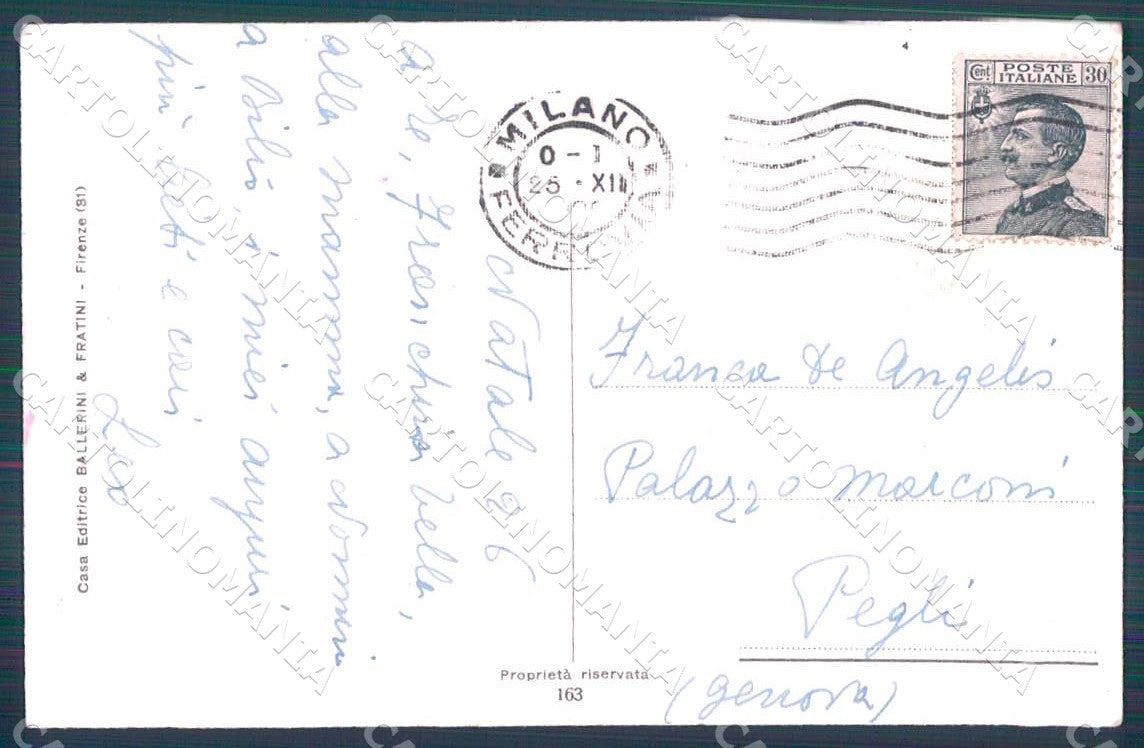 Natale 26
a Te, Franchina bella,
alla mamma, a Nonnì
a Bibi, i miei auguri
più lieti e cari
Casa Editrice BALLERINI & FRATINI - Firenze (81)
4
MILANO
0 - 1
25 · XII
FERROVIA
Cent POSTE ITALIANE 30
Franca De Angelis
Palazzo Marconi
Pegli
(Genova)
Proprietà riservata
163
CARTOLINOMANIA